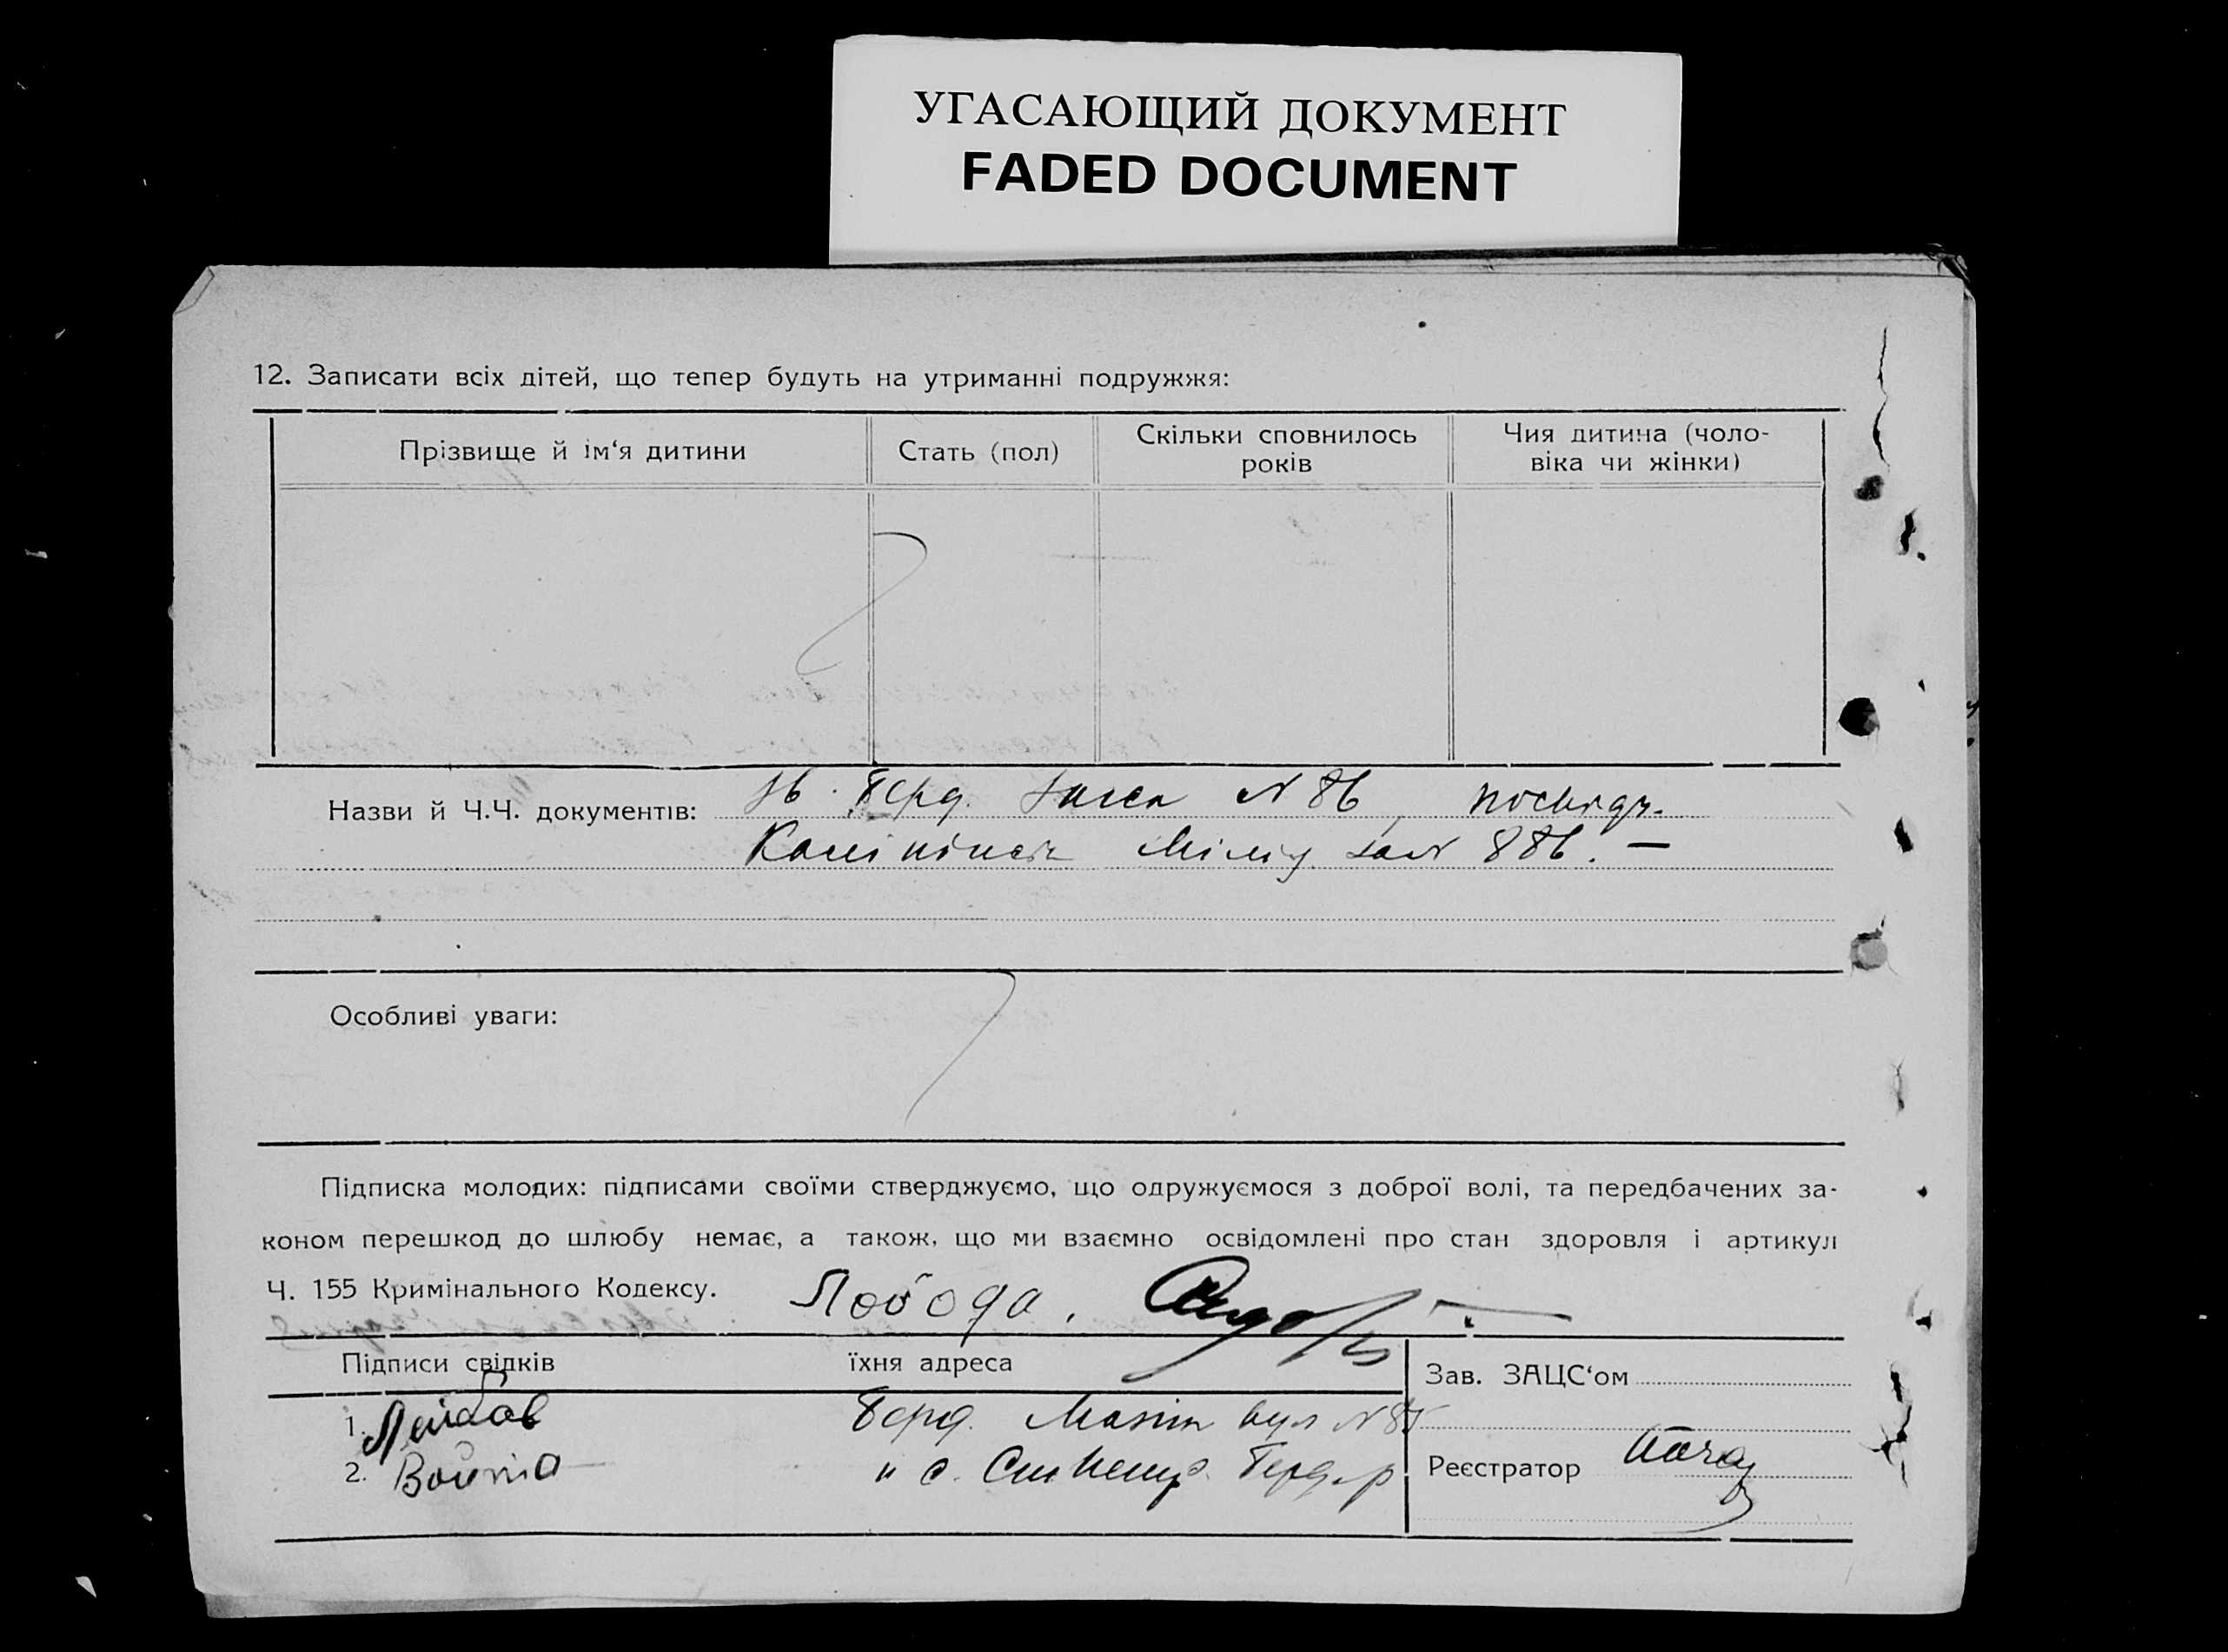 УГАСАЮЩИЙ ДОКУМЕНТ
FADED DOCUMENT
12. Записати всіх дітей, що тепер будуть на утриманні подружжя:
Прізвище й ім‘я дитини
Стать (пол)
Скільки сповнилось
років
Чия дитина (чоло-
віка чи жінки)
Назви й Ч.Ч. документів:
Берд. N 86,
Мілід. N 886. —
Особливі уваги:
Підписка молодих: підписами своїми стверджуємо, що одружуємося з доброї волі, та передбачених за-
коном перешкод до шлюбу немає, а також, що ми взаємно освідомлені про стан здоровля і артикул
Ч. 155 Кримінального Кодексу.
Лобода,
Підписи свідків
їхня адреса
Зав. ЗАЦС‘ом
1.
Берд. вул N 85
2. Война
Реєстратор